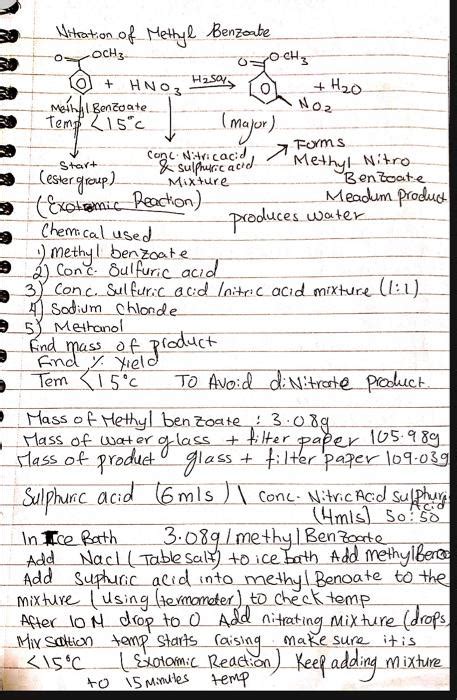 Nitration of Methyl Benzoate
O OCH3 O O-CH3
+ HNO3 H2SO4 + H2O
NO2
Methyl Benzoate
Temp <15°c (major)
Start Conc. Nitric acid Forms
(ester group) & Sulphuric acid Methyl Nitro
Mixture Benzoate
(Exotomic Reaction) Meadum product
produces water
Chemical used
1) methyl benzoate
2) Conc. Sulfuric acid
3) Conc. Sulfuric acid /nitric acid mixture (1:1)
4) Sodium Chloride
5) Methanol
Find mass of product
Find % Yield
Tem <15°c To Avoid diNitrate product.
Mass of Methyl benzoate : 3.08g
Mass of water glass + filter paper 105.98g
Mass of product glass + filter paper 109.03g
Sulphuric acid (6mls) \ Conc. Nitric Acid Sulphuric Acid
(4mls) 50:50
In Ice Bath 3.08g/methyl Benzoate
Add Nacl (Table salt) to ice bath Add methyl Benzo
Add Suphuric acid into methyl Benoate to the
mixture (using (termometer) to check temp
After 10 M drop to 0 Add nitrating mixture (drops
Mix temp starts raising make sure it is
<15°C (Exotomic Reaction) Keep adding mixture
to 15 minutes temp